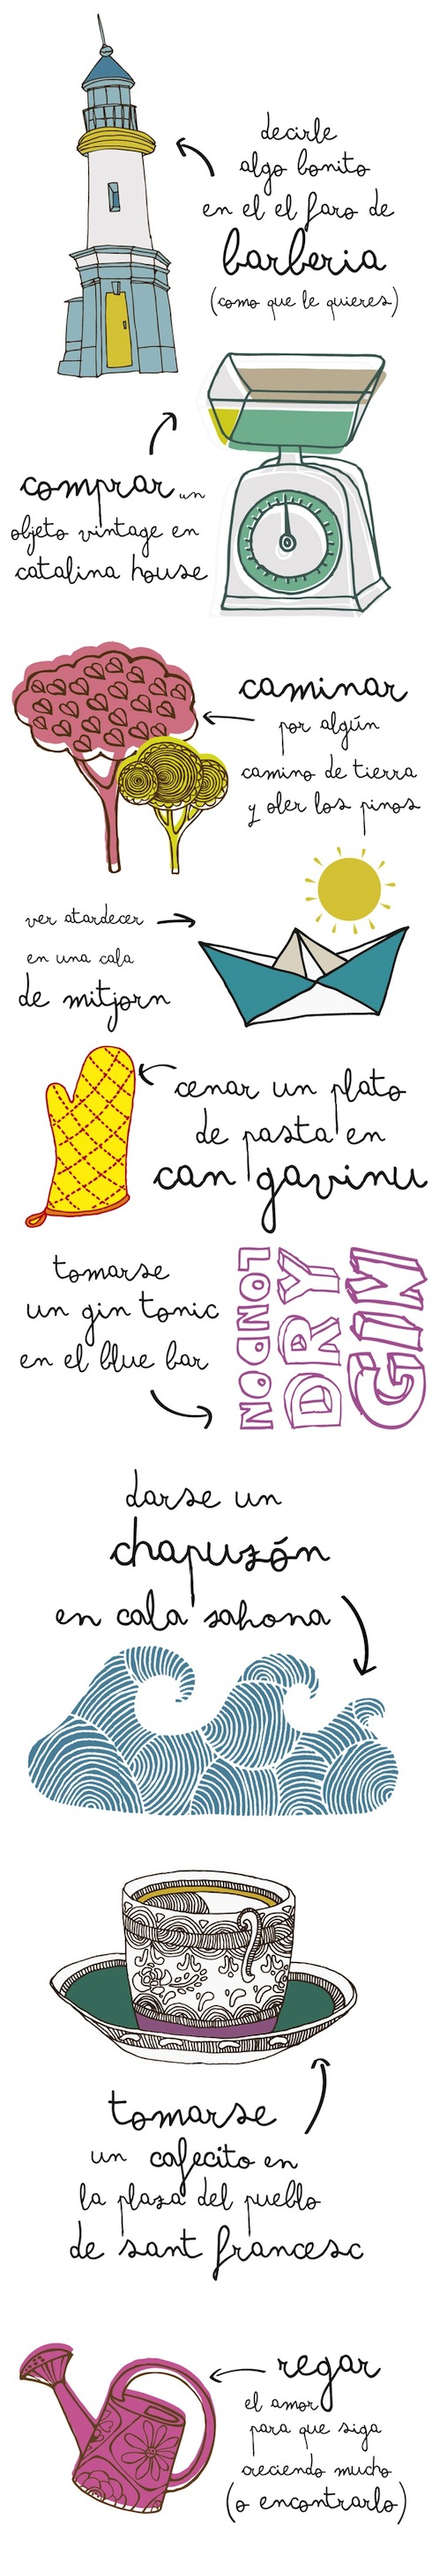 decirle
algo bonito
en el el faro de
barberia
(como que le quieres)
comprar un
objeto vintage en
catalina house
caminar
por algún
camino de tierra
y oler los pinos
ver atardecer
en una cala
de mitjorn
cenar un plato
de pasta en
can gavinu
tomarse
un gin tonic
en el blue bar
LONDON
DRY
GIN
darse un
chapuzón
en cala sahona
tomarse
un cafecito en
la plaza del pueblo
de sant francesc
regar
el amor
para que siga
creciendo mucho
(o encontrarlo)